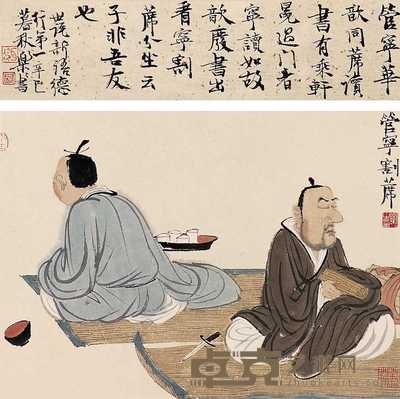 管寧華
歆同蓆讀
書有乘軒
冕過門者
寧讀如故
歆廢書出
看寧割
蓆分坐云
子非吾友
也
世說新語德
行第一辛巳
樂書
管寧割蓆
卓克艺术网
zhuokearts.com